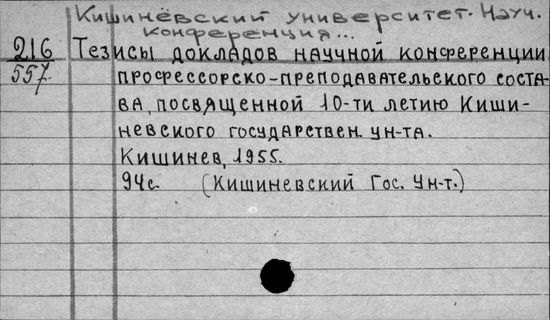 Кишинёвский университет. Науч.
конференция...
216 Тезисы докладов научной конференции
557. профессорско-преподавательского соста-
ва, посвященной 10-ти летию Киши-
невского государствен. ун-та.
Кишинев, 1955.
94с. (Кишиневский Гос. Ун-т.)